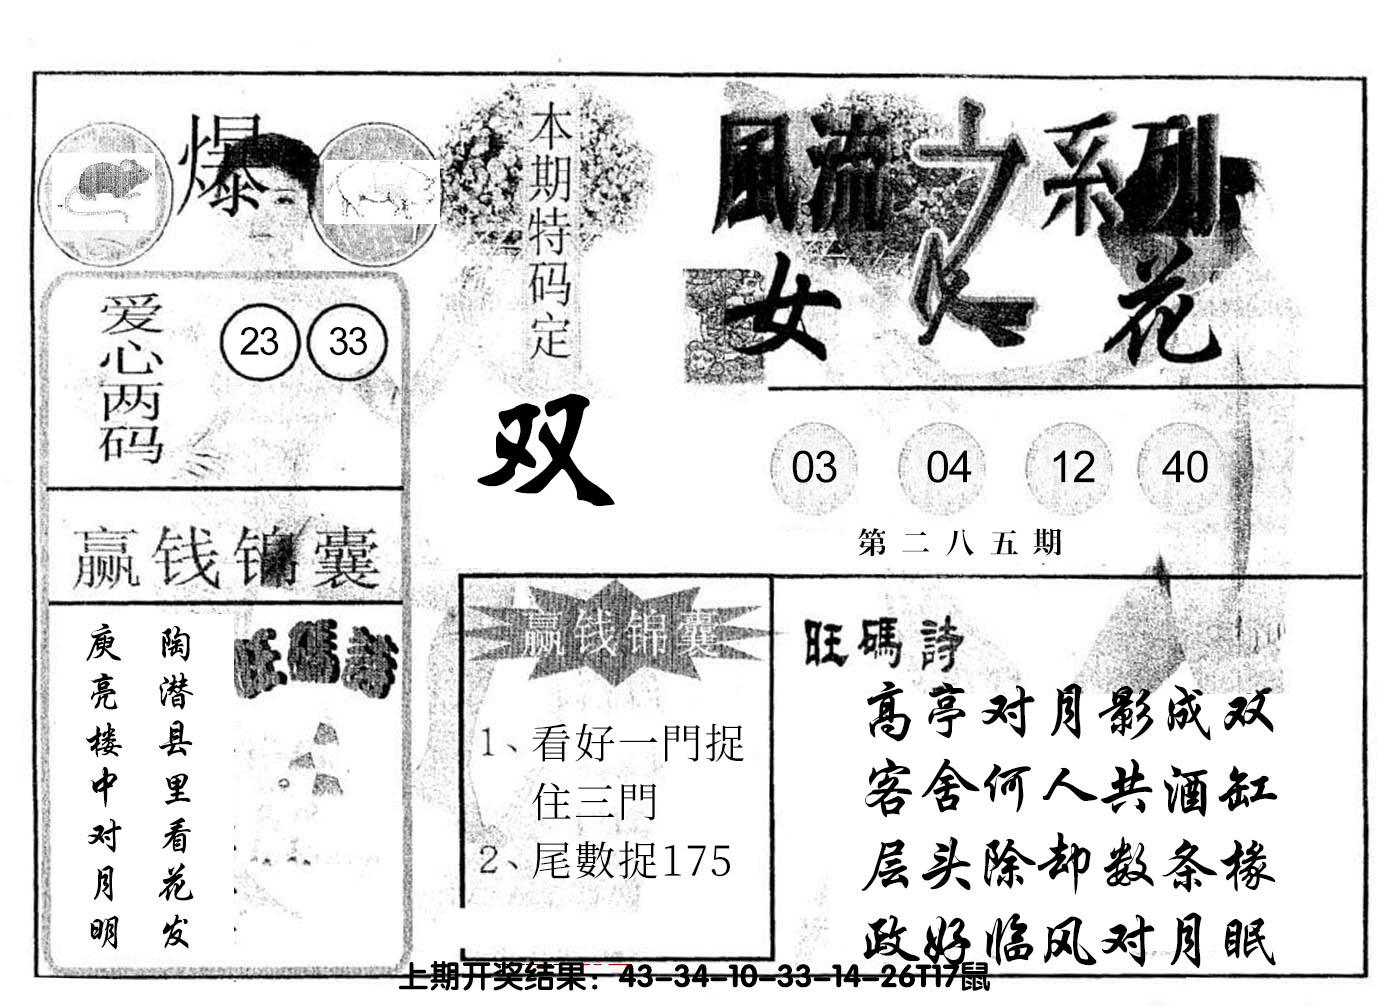 爆
本期特码定
双
風流之系列
女人花
爱心两码
23 33
03 04 12 40
第二八五期
赢钱锦囊
旺碼詩
陶潜县里看花发
庾亮楼中对月明
赢钱锦囊
1、看好一門捉
住三門
2、尾數捉175
旺碼詩
高亭对月影成双
客舍何人共酒缸
层头除却数条椽
政好临风对月眠
上期开奖结果：43-34-10-33-14-26T17鼠